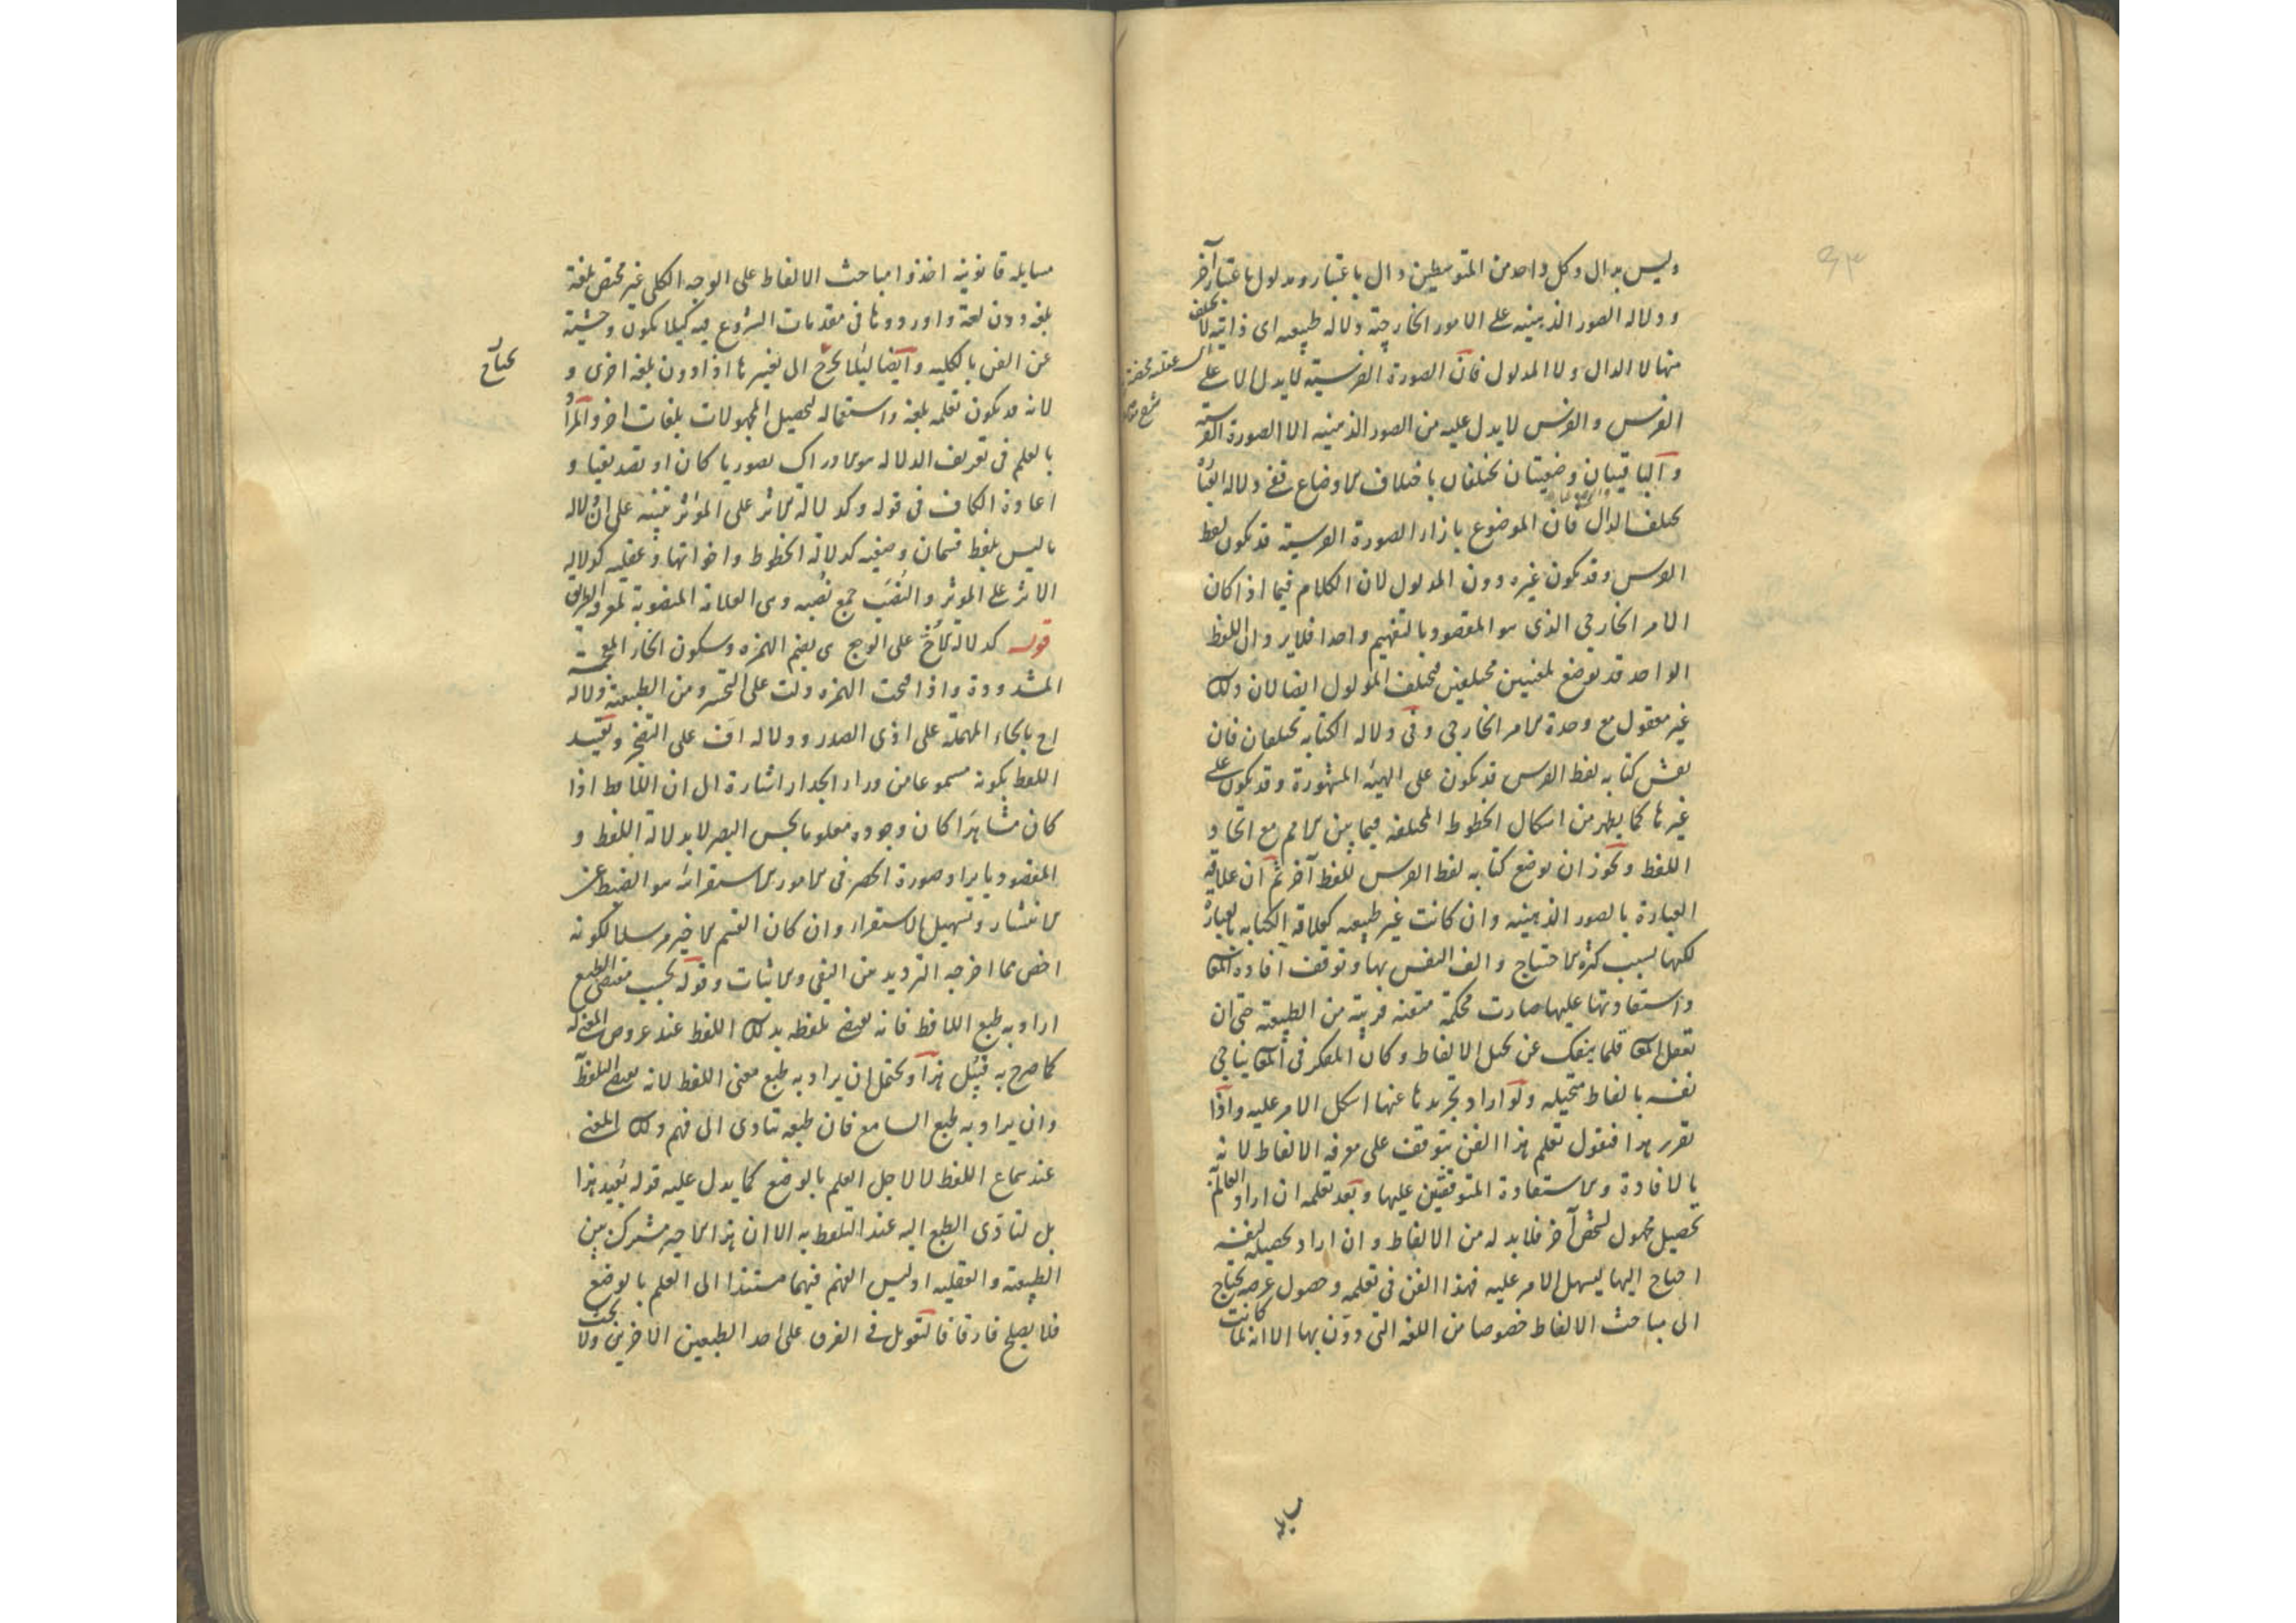 وليس بدال وكل واحد من المتوسطين دال باعتبار ومدلول باعتبار آخر
ودلالة الصور الذهنية على الامور الخارجية دلالة طبيعية اى ذاتية لا يختلف
فيها لا الدال ولا المدلول فان الصورة الفرسية لا يدل الا على
الفرس والفرس لا يدل عليه من الصور الذهنية الا الصورة الفرسية
والباقيتان وضعيتان تختلفان باختلاف الاوضاع ففى دلالة العبارة
يختلف الدال فان الموضوع بازاء الصورة الفرسية قد يكون لفظ
الفرس وقد يكون غيره دون المدلول لان الكلام فيما اذا كان
الامر الخارجى الذى هو المقصود بالتفهيم واحدا فلا يرد ان اللفظ
الواحد قد يوضع لمعنيين مختلفين فيختلف المدلول ايضا لان ذلك
غير معقول مع وحدة الامر الخارجى وفى دلالة الكتابة تختلفان فان
نقش كتابة لفظ الفرس قد يكون على الهيئة المشهورة وقد يكون على
غيرها كما يظهر من اشكال الخطوط المختلفة فيما بين الامم مع اتحاد
اللفظ ويجوز ان يوضع كتابة لفظ الفرس للفظ آخر ثم ان علاقة
العبارة بالصور الذهنية وان كانت غير طبيعية كعلاقة الكتابة بالعبارة
لكنها بسبب كثرة الاحتياج والف النفس بها وتوقف افادة المعانى
واستفادتها عليها صارت محكمة متقنة قريبة من الطبيعية حتى ان
تعقل المعانى قلما ينفك عن تخيل الالفاظ وكان المفكر فى المعانى يناجى
نفسه بالفاظ متخيلة ولو اراد تجريدها عنها اشكل الامر عليه واذا
تقرر هذا فنقول تعلم هذا الفن يتوقف على معرفة الالفاظ لانه
بالافادة والاستفادة المتوقفتين عليها وبعد تعلمه ان اراد العالم
تحصيل مجهول لشخص آخر فلا بد له من الالفاظ وان اراد تحصيله لنفسه
احتاج اليها ليسهل الامر عليه فهذا الفن فى تعلمه وحصول غرضه يحتاج
الى مباحث الالفاظ خصوصا من اللغة التى دون بها الا انه لما كانت
مسايله قانونية اخذوا مباحث الالفاظ على الوجه الكلى غير مختص بلغة
بلغة دون لغة واوردوها فى مقدمات الشروع فيه كيلا يكون وحشية
عن الفن بالكلية وايضا ليلا يحتاج الى تغييرها اذا دون بلغة اخرى و
يحتاج
لانه قد يكون تعلمه بلغة واستعماله لتحصيل المجهولات بلغات اخر والمراد
بالعلم فى تعريف الدلالة هو الادراك تصوريا كان او تصديقيا و
اعادة الكاف فى قوله وكدلالة الاثر على المؤثر تنبيه على ان دلالة
ما ليس بلفظ قسمان وضعية كدلالة الخطوط واخواتها وعقلية كدلالة
الاثر على المؤثر والنصب جمع نصبة وهى العلامة المنصوبة لمعرفة الطريق
قوله كدلالة اخ على الوجع هى بضم الهمزة وسكون الخاء المعجمة
المشددة واذا فتحت الهمزة دلت على التحسر ومن الطبيعية دلالة
اح بالحاء المهملة على اذى الصدر ودلالة اف على التضجر وتقييد
اللفظ بكونه مسموعا من وراء الجدار اشارة الى ان اللافظ اذا
كان مشاهدا كان وجوده معلوما بحس البصر لا بدلالة اللفظ و
المقصود بايراد صورة الحصر فى الامور الاستقرائية هو الضبط عن
الانتشار وتسهيل الاستقراء وان كان القسم الاخير مرسلا لكونه
اخص مما اخرجه الترديد من النفى والاثبات وقوله بحسب مقتضى الطبع
اراد به طبع اللافظ فانه يقتضى تلفظه بذلك اللفظ عند عروض المعنى له
كما صرح به قبيل هذا ويحتمل ان يراد به طبع معنى اللفظ لانه يقتضى التلفظ
وان يراد به طبع السامع فان طبعه تتادى الى فهم ذلك المعنى
عند سماع اللفظ لا لاجل العلم بالوضع كما يدل عليه قوله بعيد هذا
بل لتادى الطبع اليه عند التلفظ به الا ان هذا الاخير مشترك بين
الطبيعية والعقلية اذ ليس الفهم فيهما مستندا الى العلم بالوضع
فلا يصلح فارقا فالتعويل فى الفرق على احد الطبعين الاخرين ولا